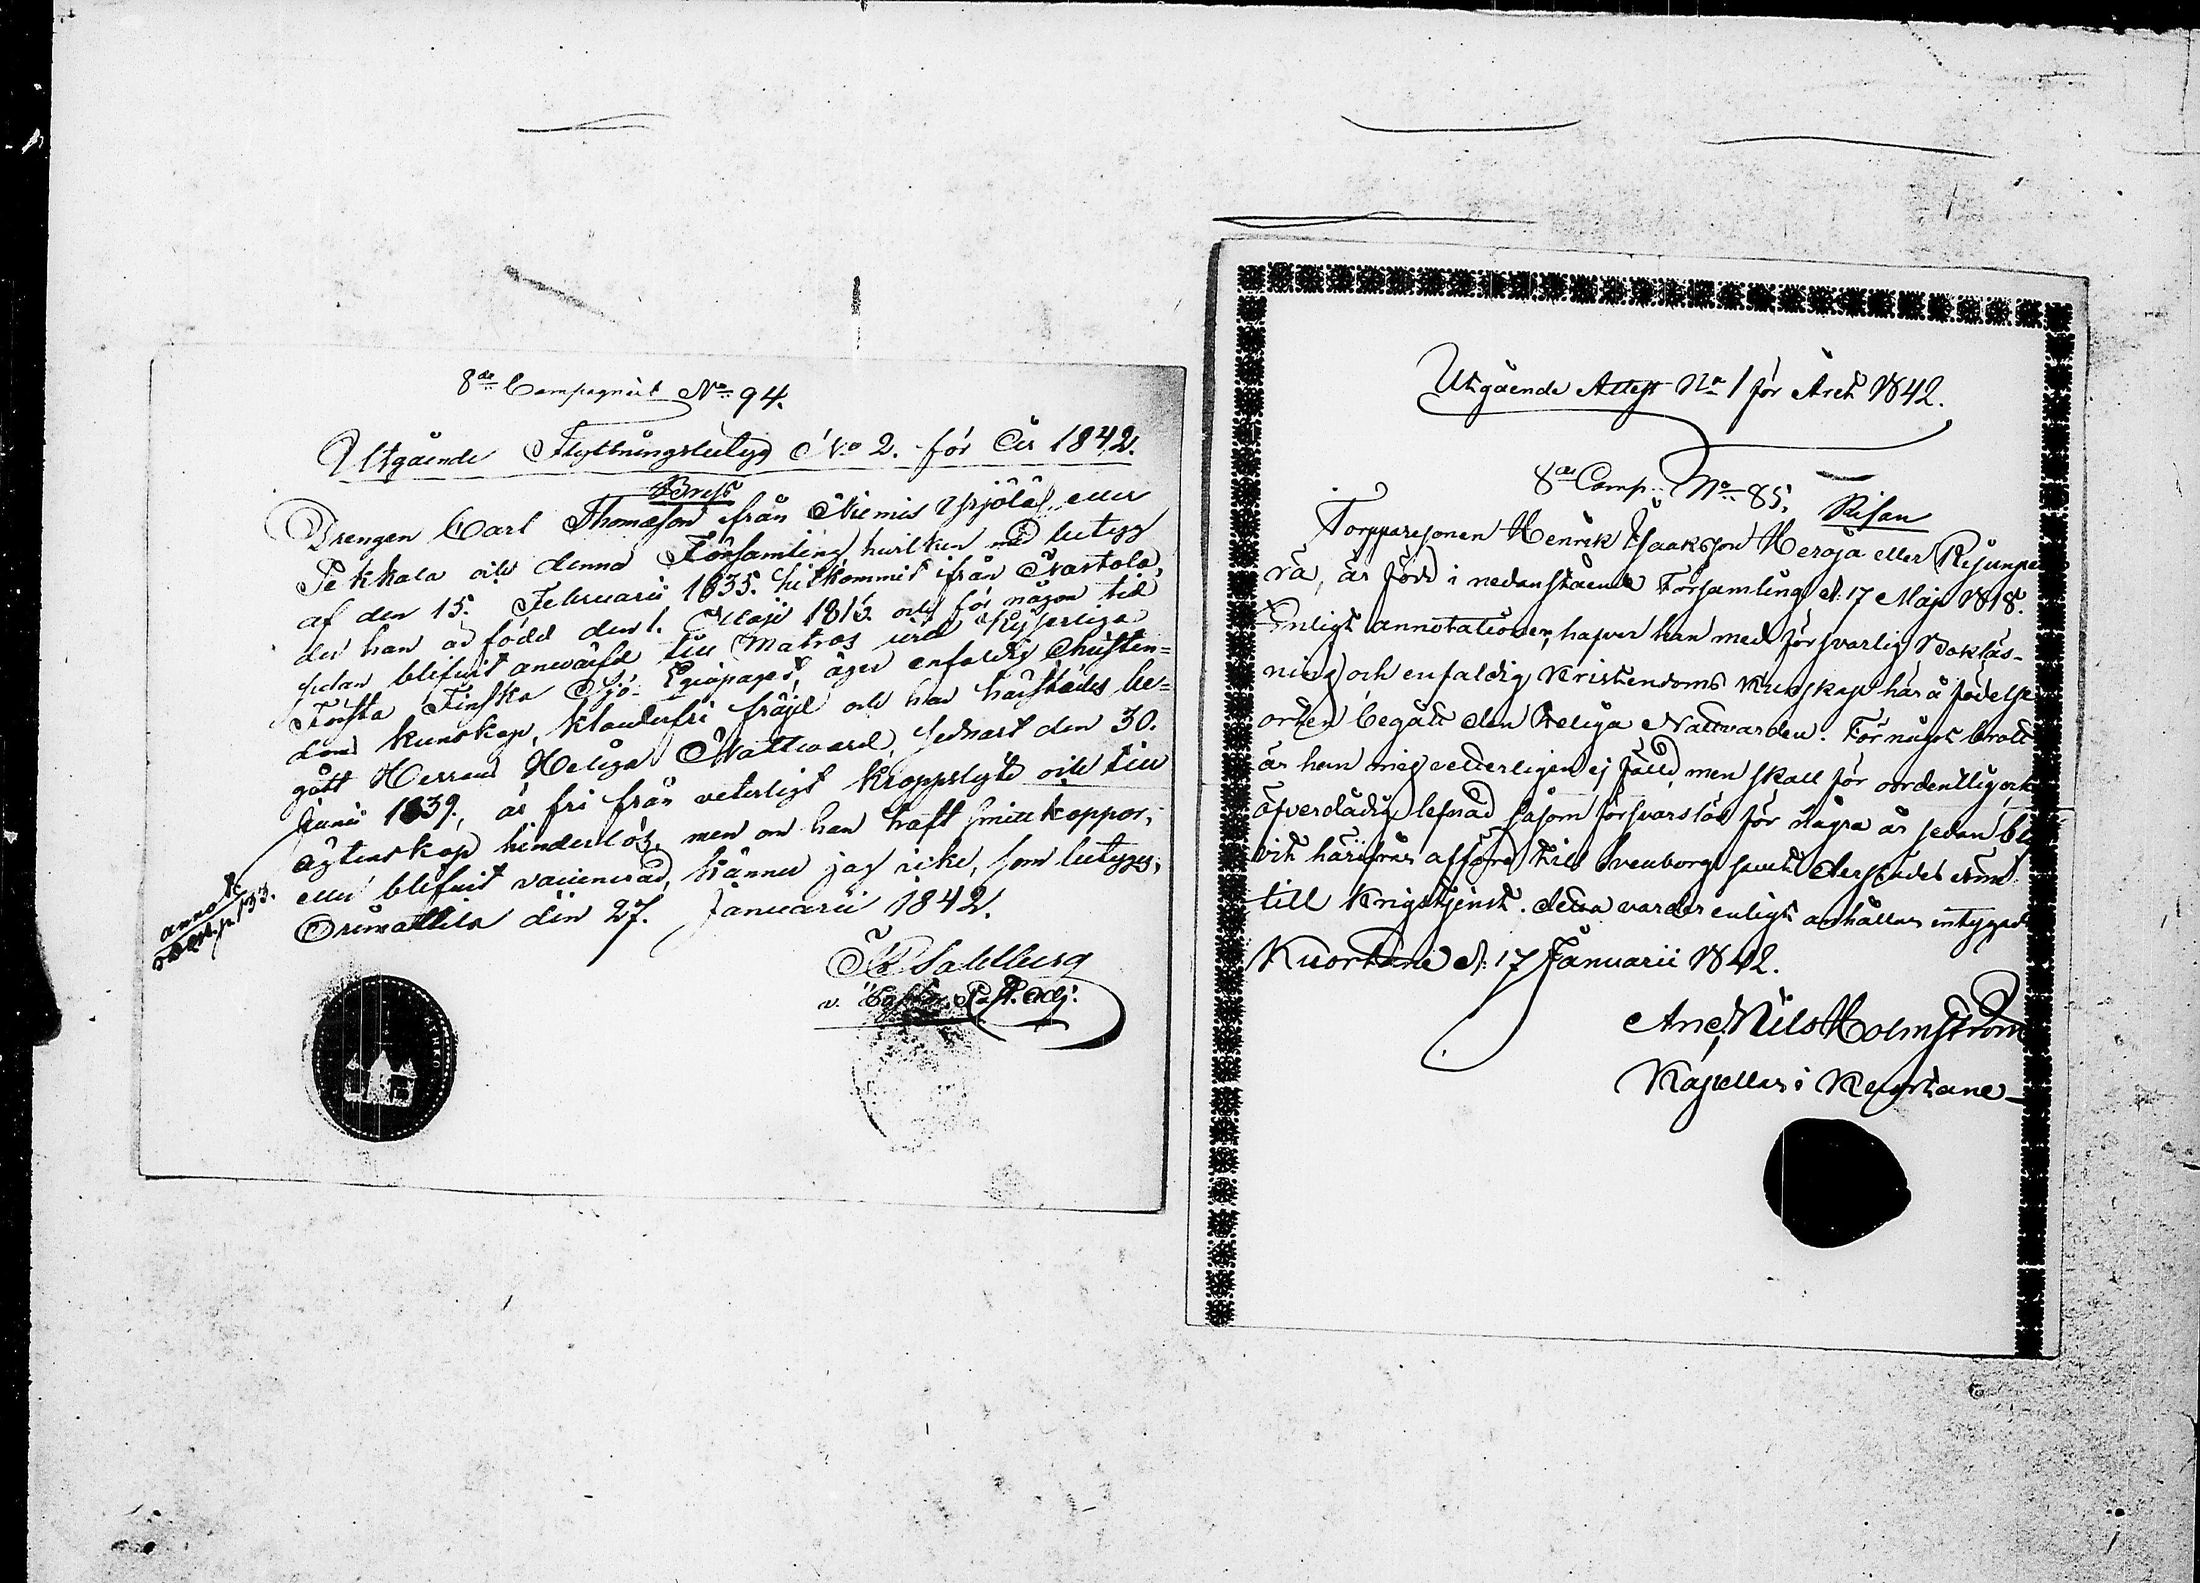 8de Compagniet No 94.
Utgående Flyttningsbetyg No 2. för År 1842.
Brask
Drengen Carl Thomasson från Niemis Yrjölä eller
Pekkala och denna Församling, hvilken med betyg
af den 15. Februarii 1835. hitkommit ifrån Nastola,
der han är född den 1. Maji 1816. och för någon tid
sedan blifvit anvärfd till Matros vid Kejserliga
Första Finska Sjö-Equipaget, äger enfaldig Christen=
doms kunskap, klanderfri fräjd och har härstädes be=
gått Herrans Heliga Nattvard, sednast den 30.
Junii 1839., är fri från veterligt kroppslyte och till
ägtenskap hinderlös, men om han haft smittkoppor,
eller blifvit vaccinerad, känner jag icke, som betygas,
Orimattila den 27. Januarii 1842.
Sahlberg
v. Past. Adj.
annot.
p. 133.
Utgående Attest No 1 för Året 1842.
8de Comp. No 85.
Risan
Torpparesonen Henrik Isaaksson Heroja eller Rijunpe
rä, är född i nedanstående Församling d. 17 Maji 1818.
Enligt annotationer, hafver han med försvarlig Bokläs-
ning och enfaldig Kristendoms Kunskap här å födelse
orten begått den Heliga Nattvarden. För något brott
är han mig vetterligen ej fälld men skall för oordentlig och
öfverdådig lefnad såsom försvarslös för några år sedan bli
vit härifrån afförd till Sveaborg samt dersstädes
till Krigstjenst. detta varder enligt anhållan intygadt
Kuortane d. 17 Januarii 1842.
And. Nils Holmström
Kapellan i Kuortane